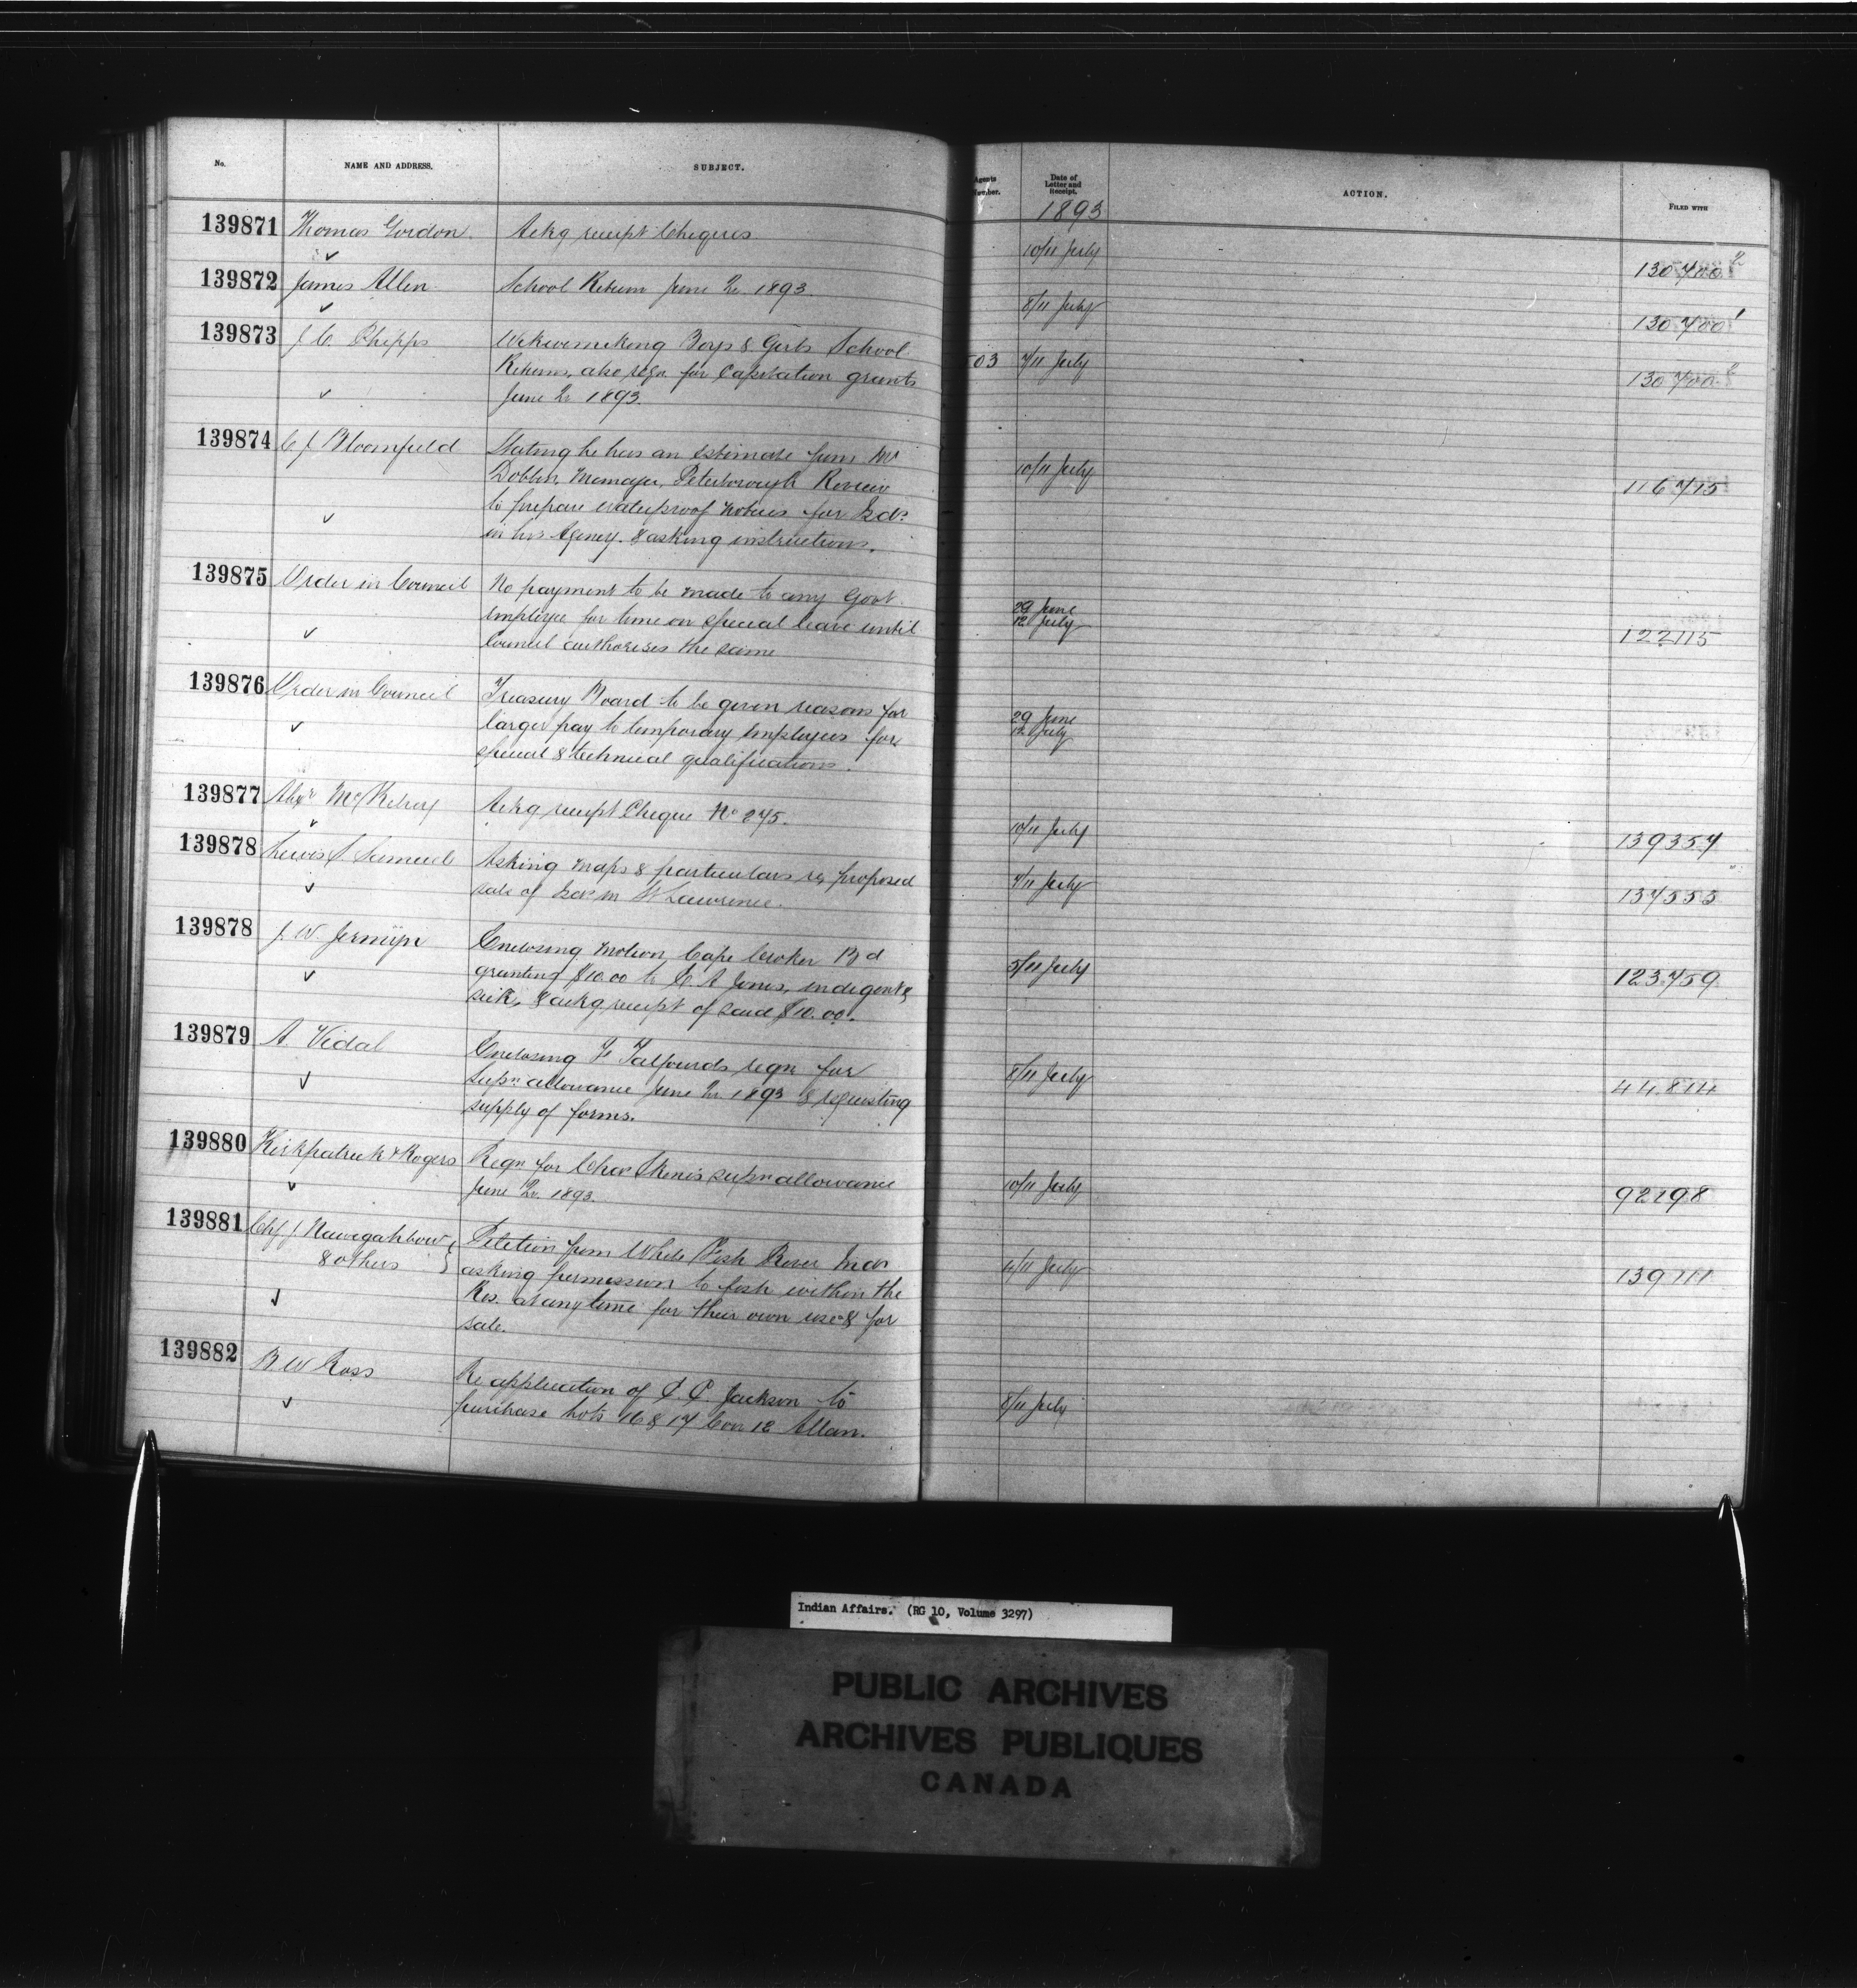 No. NAME AND ADDRESS. SUBJECT. Agents Number. Date of Letter and Receipt. ACTION. FILED WITH
1893
139871 Thomas Gordon Ackg receipt Cheques 10/11 July 130700 2
139872 James Allen School Return June Qr 1893. 8/11 July 130700 1
139873 J. C. Phipps Wikwemikong Boys & Girls School 03 7/11 July 130700 2
Returns, also reqn for Capitation grants
June Qr 1893.
139874 C J Bloomfield Stating he has an estimate from Mr 10/11 July 116715
Dobbin Manager, Peterborough Review
to prepare waterproof notices for Isds
in his Agency. & asking instructions.
139875 Order in Council No payment to be made to any Govt 29 June 122115
employee for time on special leave until 12 July
Council authorises the same
139876 Order in Council Treasury Board to be given reasons for 29 June
larger pay to temporary employees for 12 July
special & technical qualifications.
139877 Alexr McKelvey Ackg receipt Cheque No 275. 10/11 July 139357
139878 Lewis S. Samuel Asking maps & particulars re proposed 7/11 July 137553
sale of Isds in St Lawrence.
139878 J. W. Jermyn Enclosing motion, Cape Croker Bd 5/11 July 123759
granting $10.00 to C. A Jones, indigent &
sick, & ackg receipt of said $10.00.
139879 A. Vidal Enclosing F Talfourds reqn for 8/11 July 44814
supn allowance June Qr. 1893 & requesting
supply of forms.
139880 Kirkpatrick & Rogers Reqn for Chas Skene's supn allowance 10/11 July 92198
June Qr. 1893.
139881 Chf J Nawegahbow Petition from White Fish River Inds 4/11 July 139111
& others asking permission to fish within the
Res. at any time for their own use & for
sale.
139882 B W Ross Re application of P. C. Jackson to 8/11 July
purchase Lots 16 & 17 Con 12 Allan.
Indian Affairs. (RG 10, Volume 3297)
PUBLIC ARCHIVES
ARCHIVES PUBLIQUES
CANADA